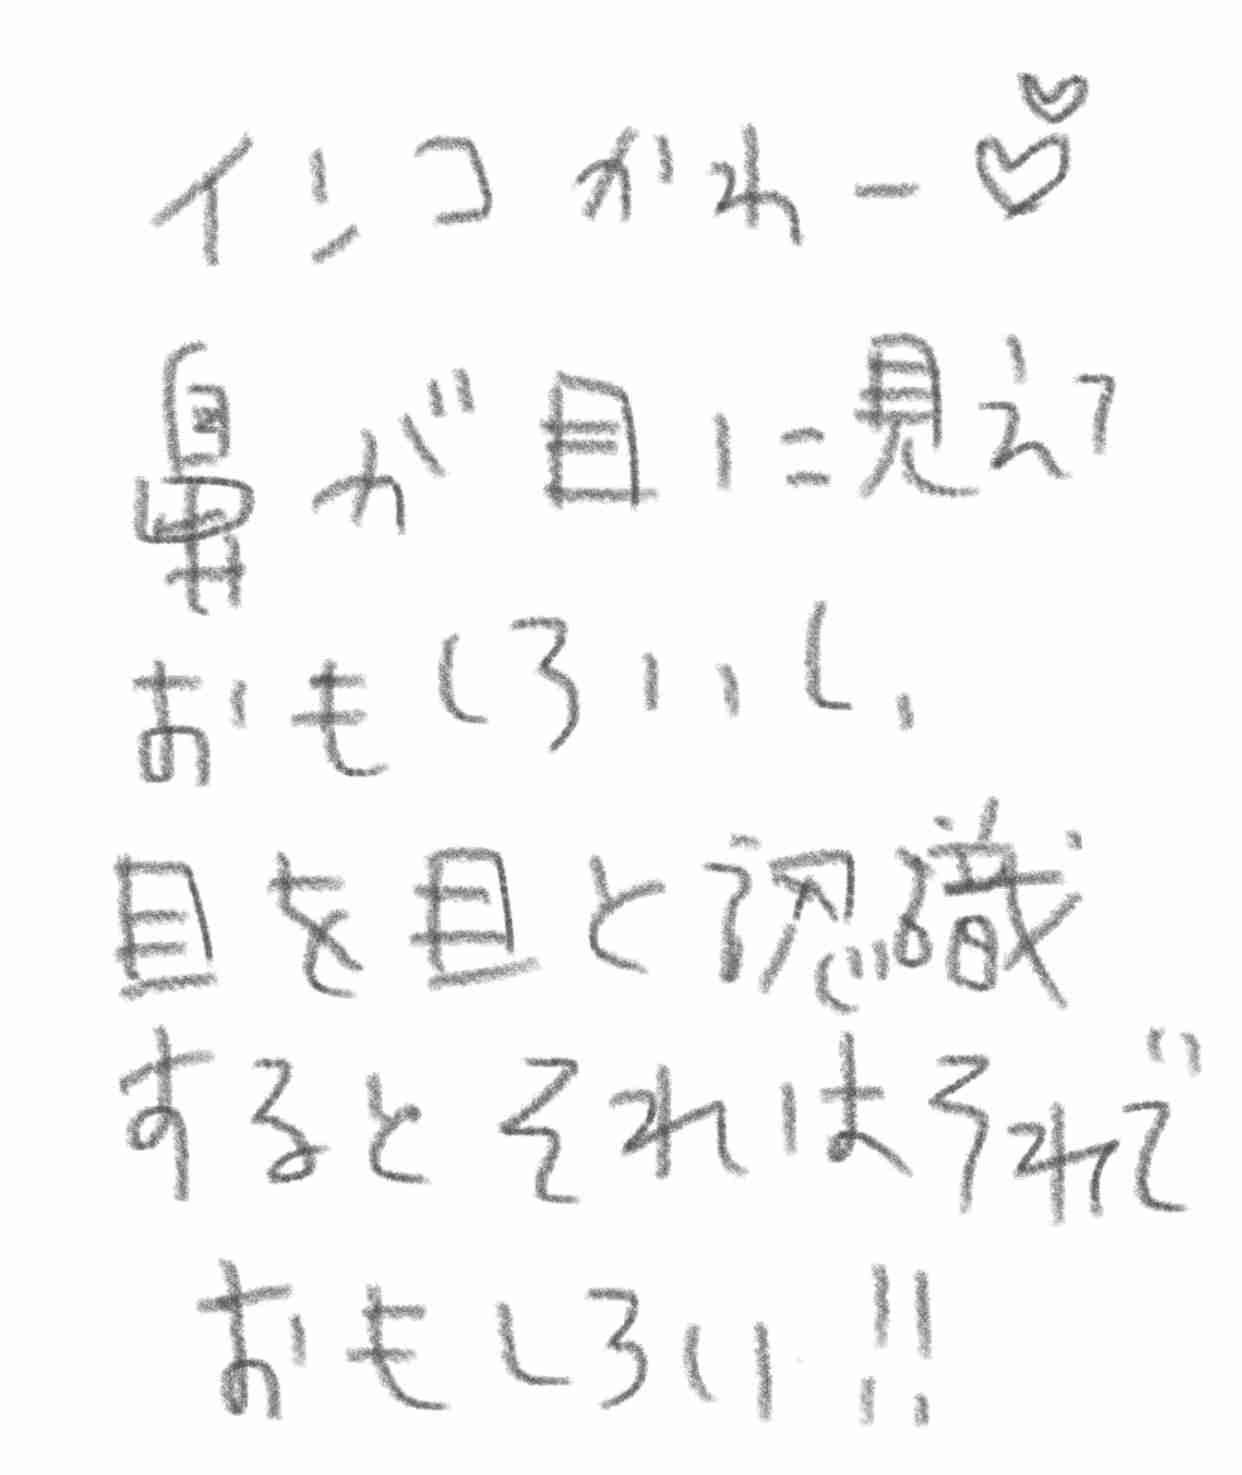 インコかわー♡♡
鼻が目に見えて
おもしろいし、
目を目と認識
するとそれはそれで
おもしろい!!